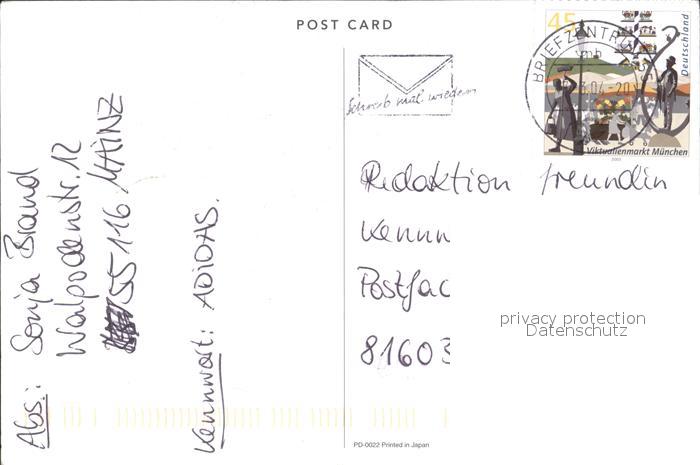 POST CARD
Abs.: Sonja Brand
Walpodenstr. 12
55116 MAINZ
Kennwort: ADIDAS.
Schreib mal wieder
45
Deutschland
BRIEFZENTRUM
.04-20
Viktualienmarkt München
2003
Redaktion freundin
Kennn
Postfac
81603
privacy protection
Datenschutz
PD-0022 Printed in Japan